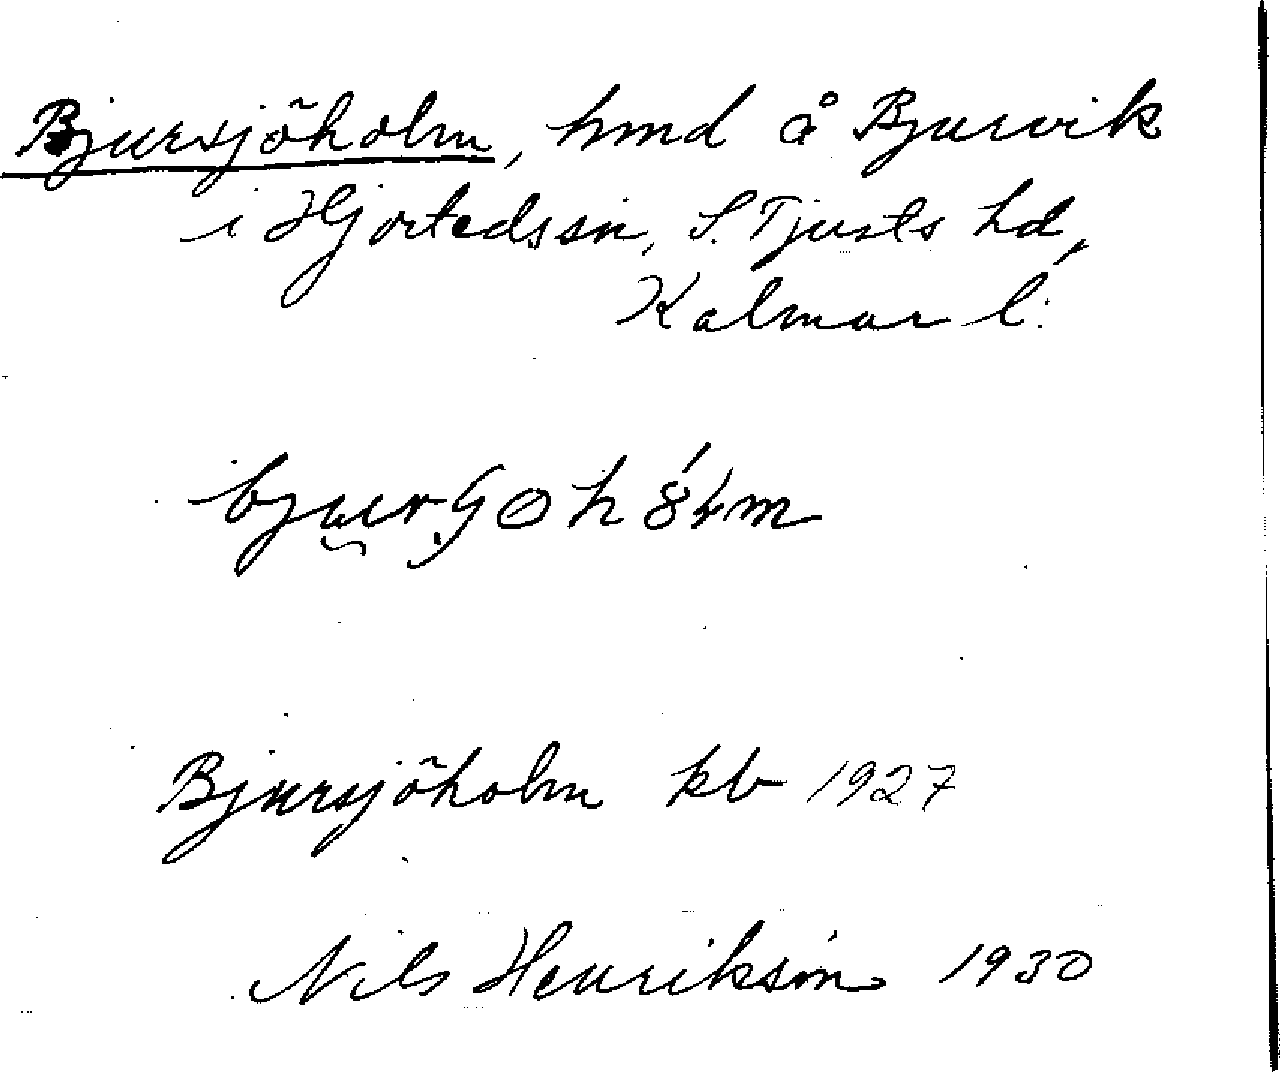 Bjursjöholm, hmd å Bjurvik
i Hjorteds sn, S. Tjusts hd,
Kalmar l.
Bjursjöholm kb 1927
Nils Henrikson 1930